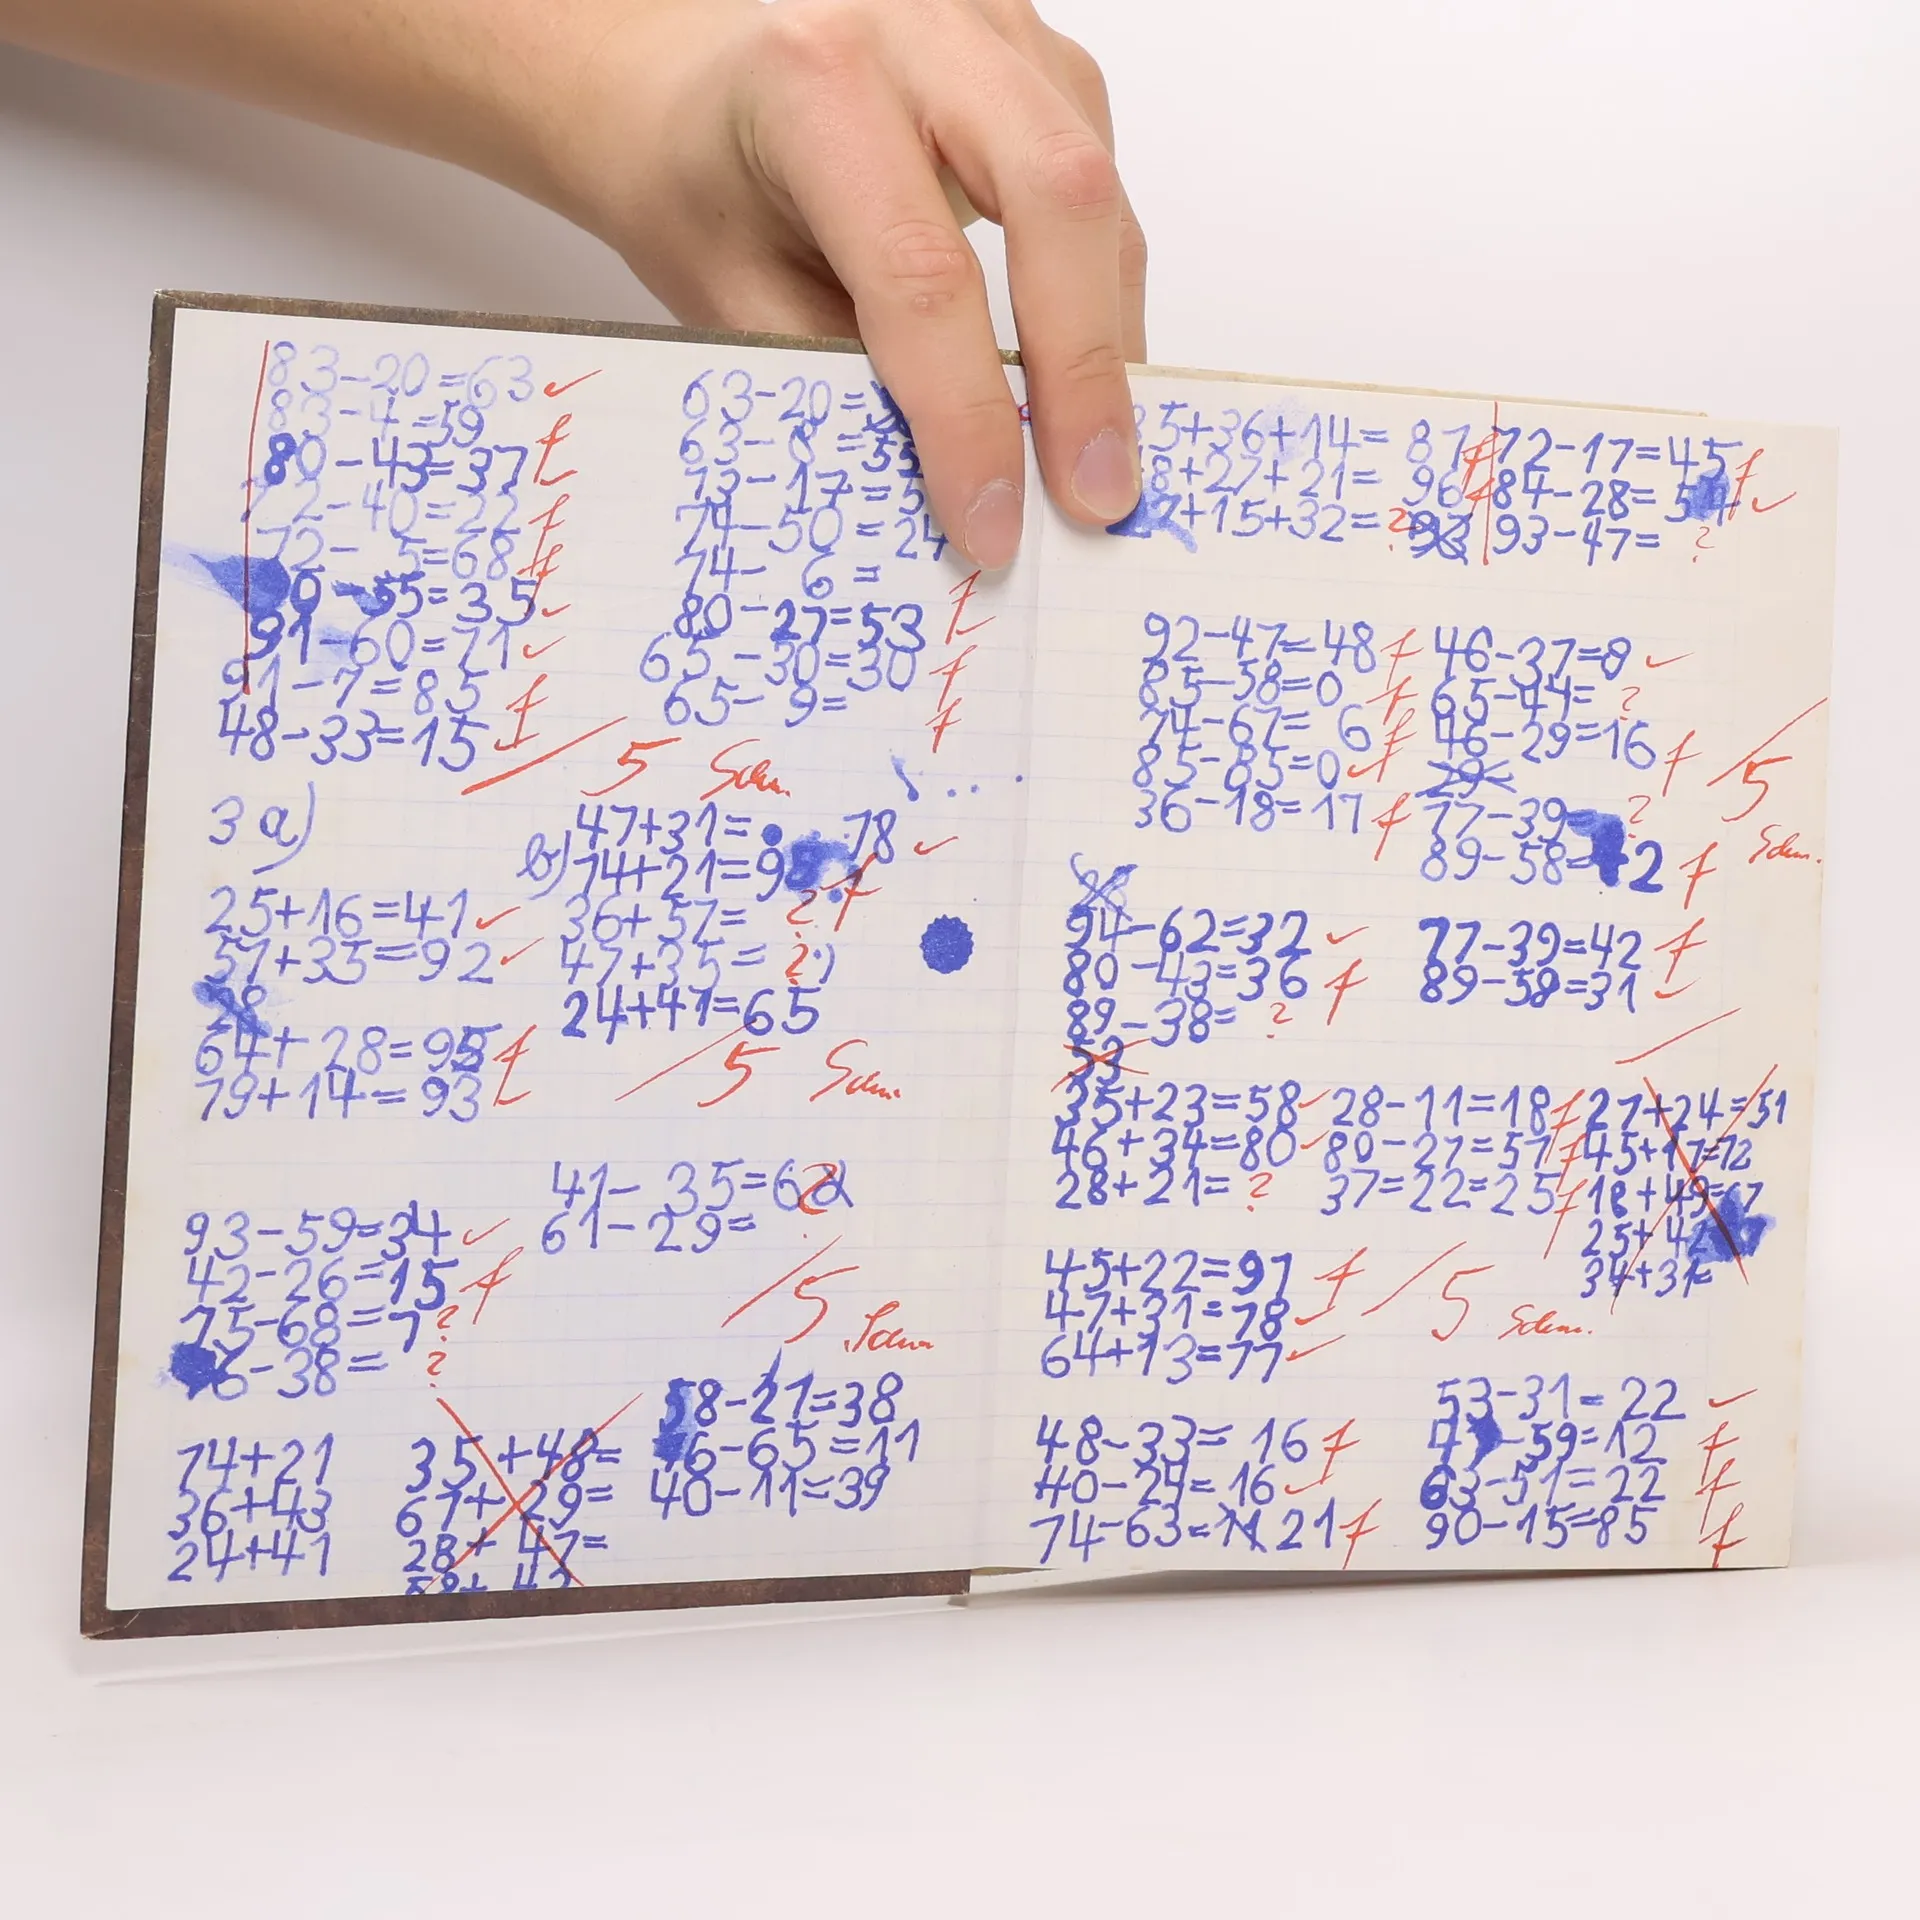 83-20=63 ✓
83-4=59 f
80-43=37 ✓
72-40=22 f
72- 5=68 f
0-55=35 ✓
91-60=71 ✓
91-7=85 f
48-33=15 ✓
63-20=
63-8=55
73-17=5
74-50=24
74- 6= f
80-27=53 ✓
65-30=30 f
65- 9= f
5 Schm.
3 a)
25+16=41 ✓
57+35=92 ✓
28
64+28=95 f
79+14=93 ✓
b) 47+31= 78 ✓
74+21=95 f
36+57= ?
47+35= ?
24+41=65
5 Schm.
93-59=34 ✓
42-26=15 f
75-68=7 ?
6-38= ?
41-35=6
61-29=
5 Schm.
74+21
36+43
24+41
35+48=
67+29=
28+47=
58-21=38
76-65=11
40-11=39
35+36+14= 87 f
8+27+21= 96 f
7+15+32= ? 93
72-17=45 f
84-28=54 ✓
93-47= ?
92-47=48 f
85-58=0 f
74-67= 6 f
85-85=0 ✓
36-18=17 f
46-37=8 ✓
65-44= ?
46-29=16 f
29
77-39= ?
89-58= 2 f
5
Schm.
28
94-62=32 ✓
80-43=36 f
89-38= ?
33
77-39=42 f
89-58=31 ✓
35+23=58 ✓
46+34=80 ✓
28+21= ?
28-11=18 f
80-27=57 f
37=22=25 f
27+24=51
45+17=72
18+49=67
25+42
34+31=
45+22=97 f
47+31=78 ✓
64+13=77 ✓
5 Schm.
48-33= 16 f
40-24=16 ✓
74-63=11 21 f
53-31=22 ✓
4-59=12 f
63-51=22 f
90-15=85 f